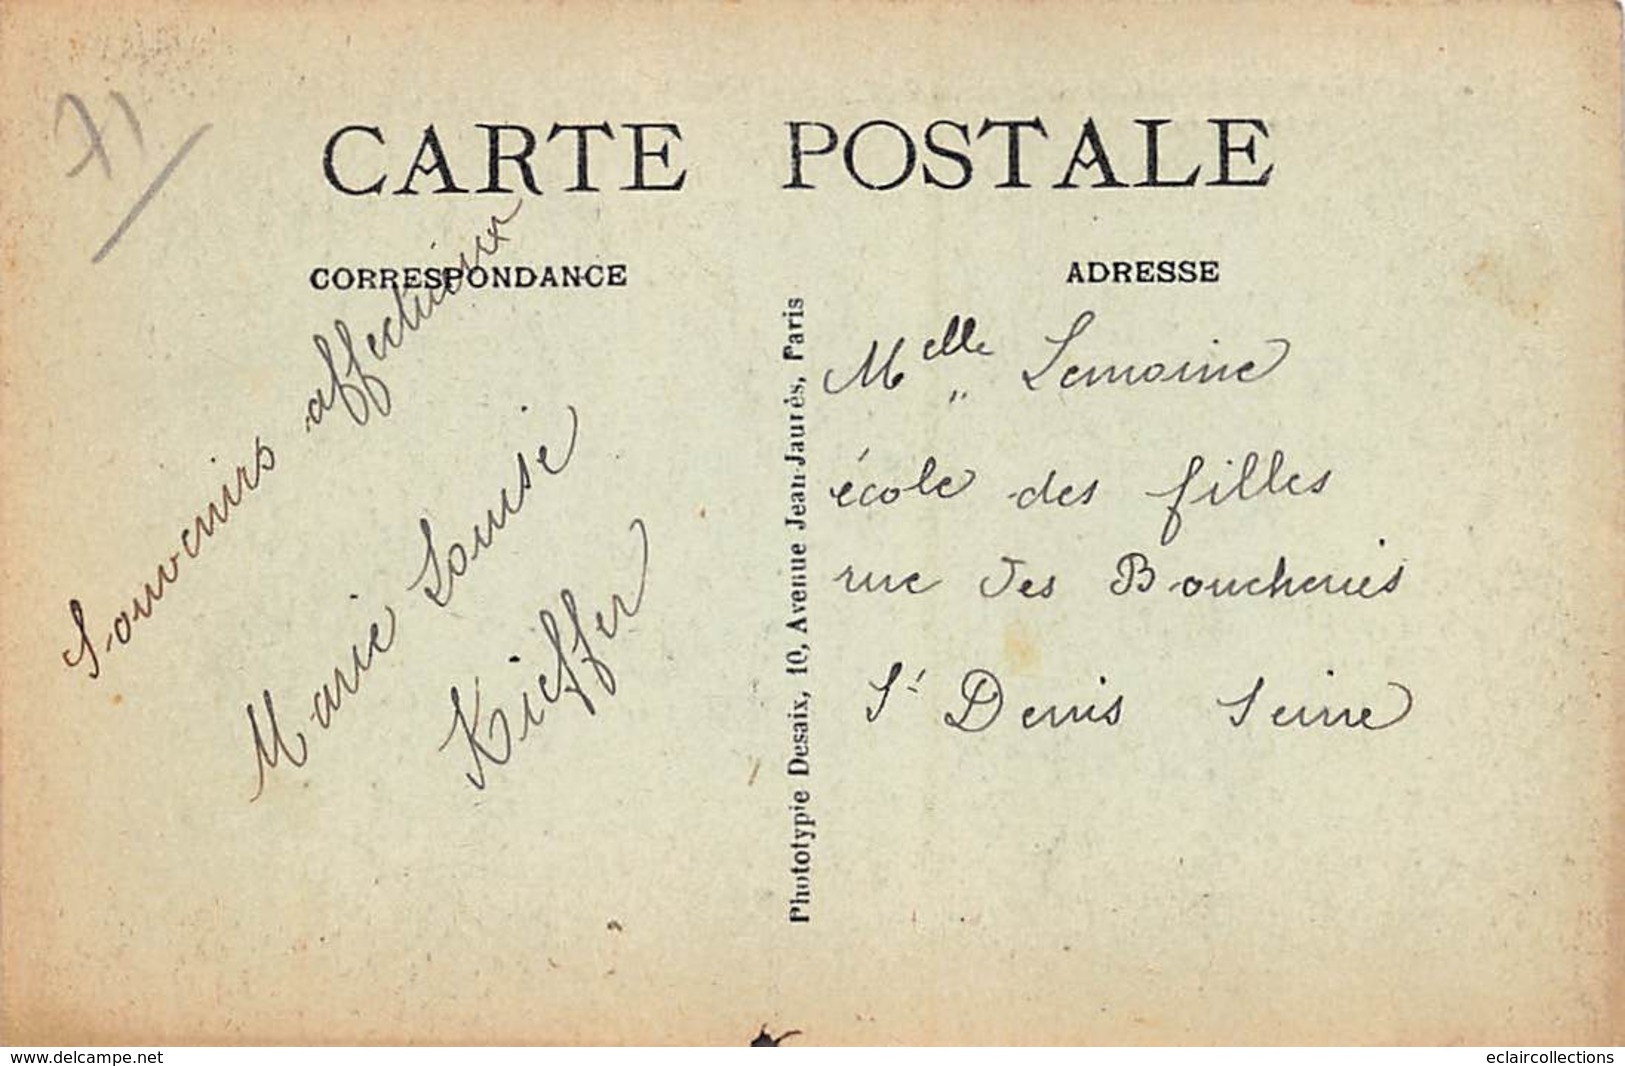 71
CARTE POSTALE
CORRESPONDANCE
ADRESSE
Souvenirs affectueux
Marie Louise
Kieffer
Phototypie Desaix, 10, Avenue Jean-Jaurès, Paris
Melle Lemoine
école des filles
rue des Boucheries
St Denis Seine
www.delcampe.net
eclaircollections